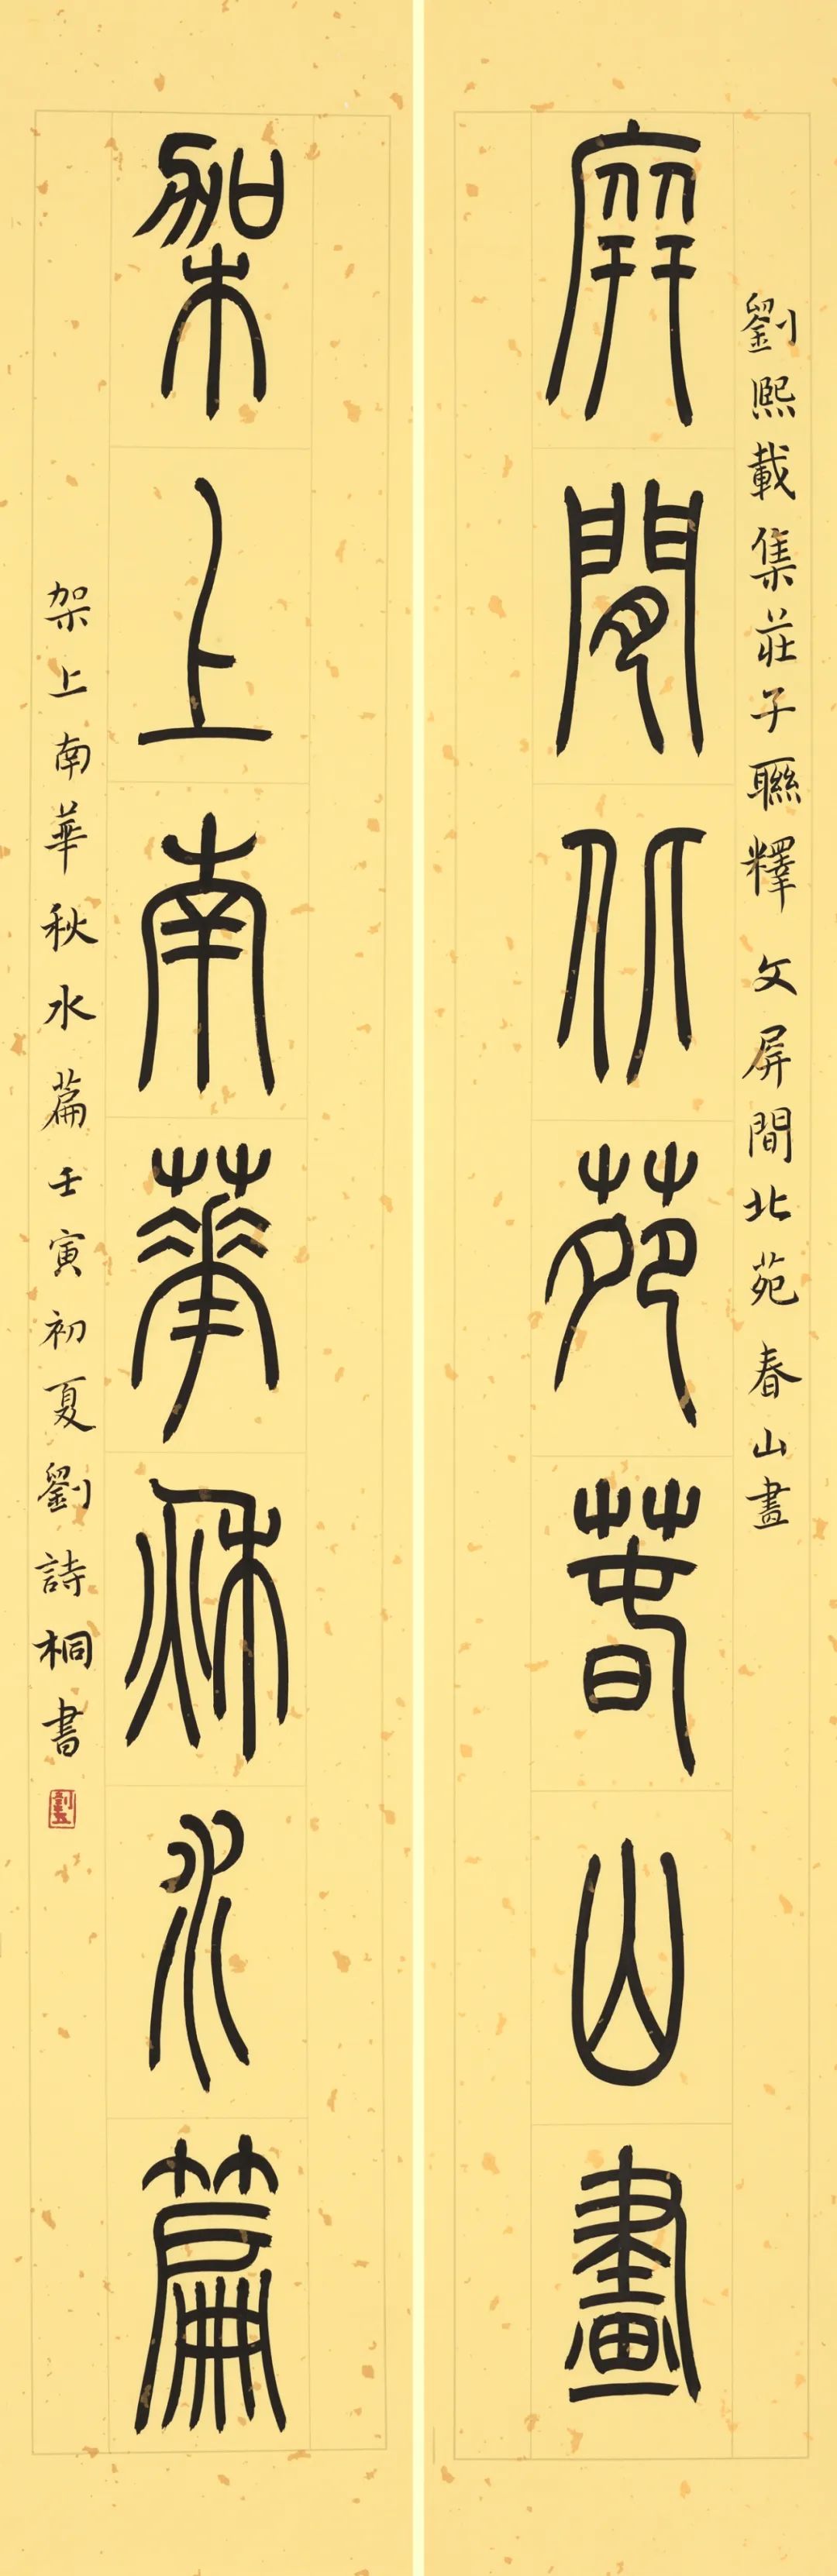 劉熙載集莊子聯釋文屏間北苑春山畫
屏間北苑春山畫
架上南華秋水篇
架上南華秋水篇壬寅初夏劉詩桐書